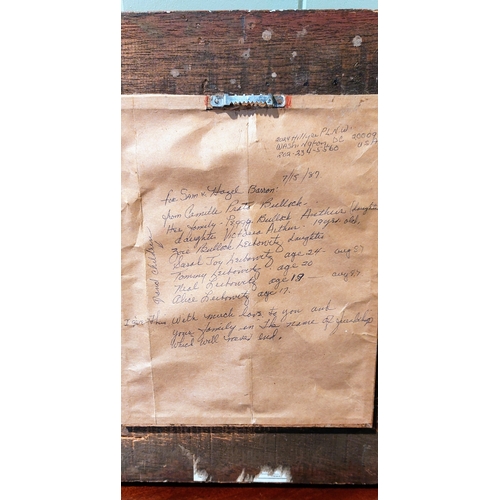 Washington, DC 20009
202-234-5560 USA
7/15/87
For Sam & Hazel Barron:
from Camille Bullock -
Her family - Peggy Bullock Arthur (daughter
daughter Victoria Arthur 19 yrs old,
Zoe Bullock Leibowitz, daughter
Sarah Joy Leibowitz age 24 - aug 87
Tommy Leibowitz - age 20
Neal Leibowitz age 19 - aug 87
Alice Leibowitz age 17.
grand children
With much love to you and
your family in the name of friendship
which will never end.